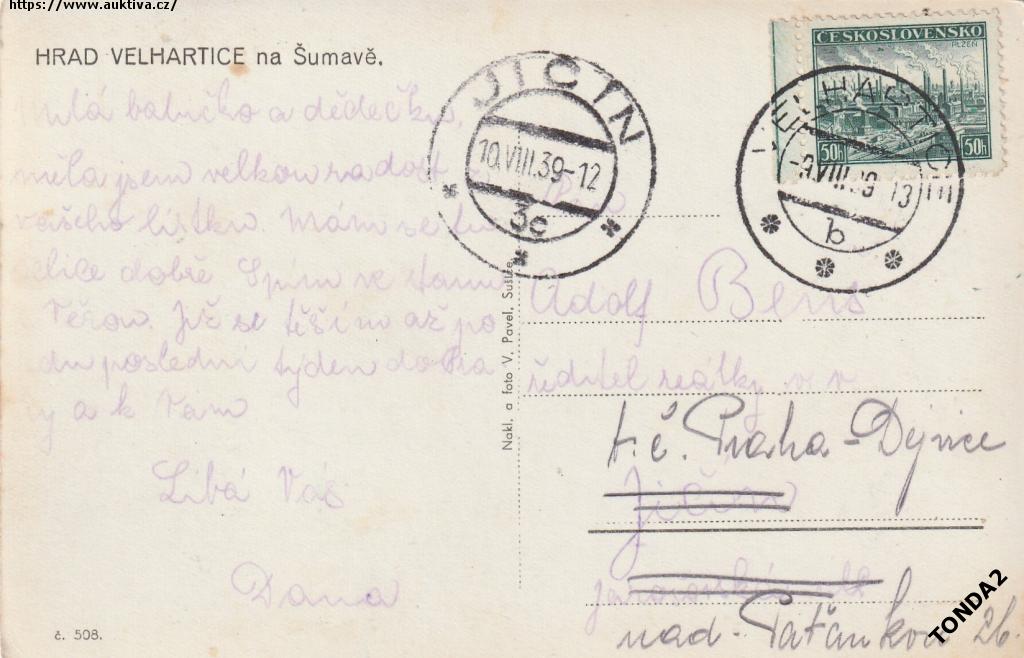 https://www.auktiva.cz/
HRAD VELHARTICE na Šumavě.
Milá babičko a dědečku,
měla jsem velkou radost z
vašeho lístku. Mám se tu
velice dobře Spím ve stanu
Těšou. Již se těším až po
du poslední týden do Pra
hy a k Vám
Líbá Vás
Dana
č. 508.
Nakl. a foto V. Pavel, Sušice.
JIČÍN
10.VIII.39-12
3c
ČESKOSLOVENSKO
PLZEŇ
50h 50h
VELHARTICE
-9.VIII.39 13
b
Pan
Adolf Bens
ředitel reálky v. v.
t. č. Praha-Dejvice
Jičín
nad Paťankou 26.
TONDA2